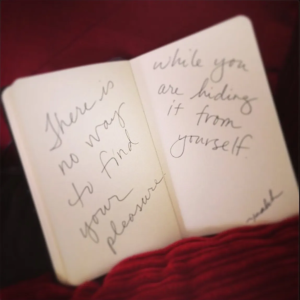 There is
no way
to find
your
pleasure
while you
are hiding
it from
yourself.